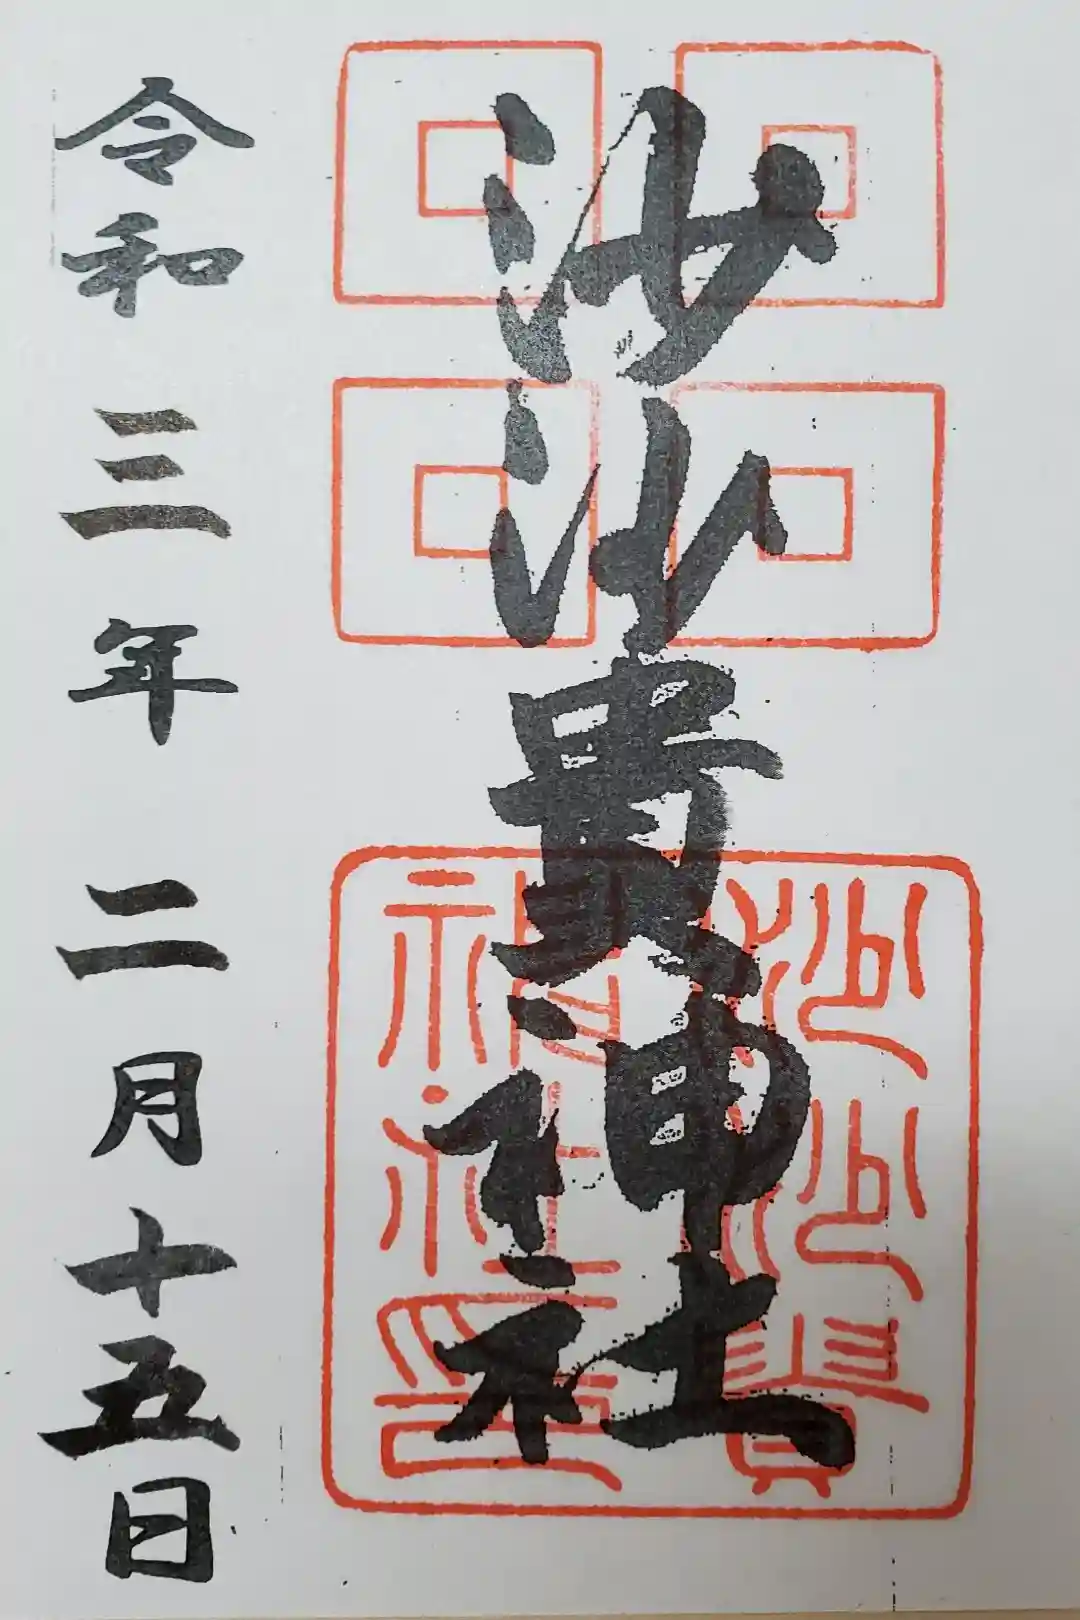 沙沙貴神社
沙沙貴
神社印
令和三年二月十五日